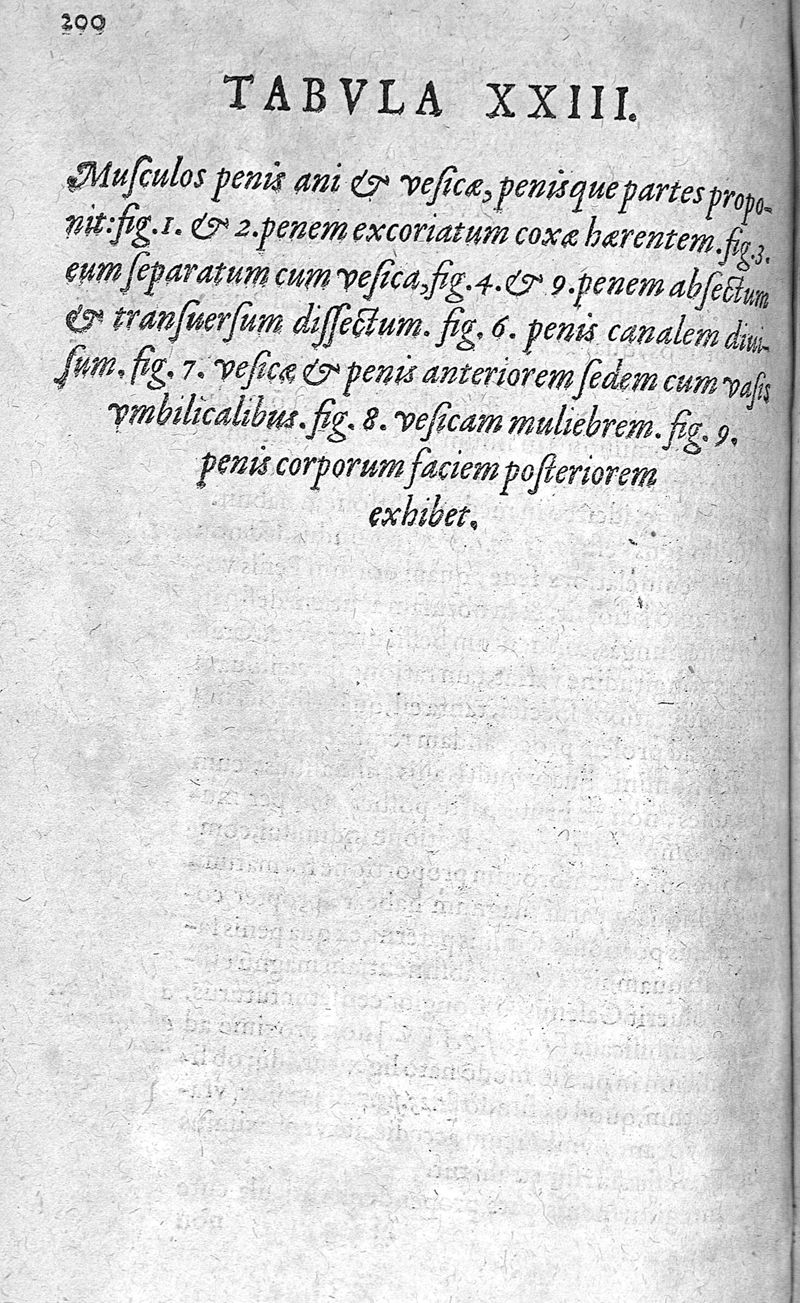 200
TABVLA XXIII.
Muſculos penis ani & veſicæ, penisque partes propo-
nit: fig. 1. & 2. penem excoriatum coxæ hærentem. fig. 3.
eum ſeparatum cum veſica, fig. 4. & 9. penem abſectum
& tranſuerſum diſſectum. fig. 6. penis canalem diui-
ſum. fig. 7. veſicæ & penis anteriorem ſedem cum vaſis
vmbilicalibus. fig. 8. veſicam muliebrem. fig. 9.
penis corporum faciem poſteriorem
exhibet.